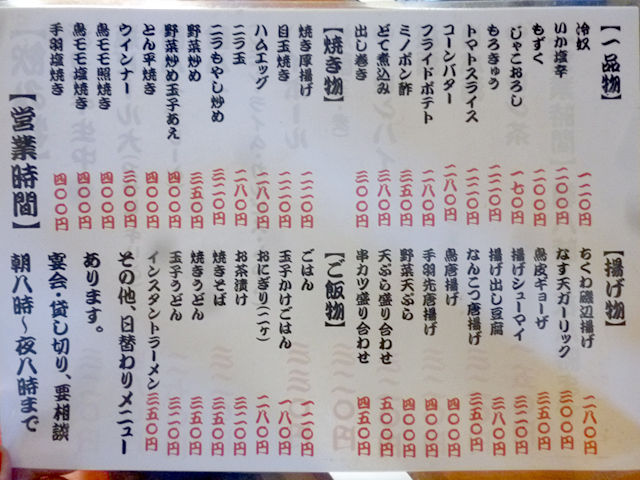 【一品物】
冷奴 一二〇円
いか塩辛 二〇〇円
もずく 二〇〇円
じゃこおろし 一七〇円
もろきゅう 二二〇円
トマトスライス 二二〇円
コーンバター 二八〇円
フライドポテト 二八〇円
ミノポン酢 三五〇円
どて煮込み 三八〇円
出し巻き 三〇〇円
【焼き物】
焼き厚揚げ 二二〇円
目玉焼き 二二〇円
ハムエッグ 二八〇円
ニラ玉 二八〇円
ニラもやし炒め 三二〇円
野菜炒め 三五〇円
野菜炒め玉子あえ 四〇〇円
とん平焼き 四〇〇円
ウインナー 三〇〇円
鳥モモ照焼き 四〇〇円
鳥モモ塩焼き 四〇〇円
手羽塩焼き 四〇〇円
【揚げ物】
ちくわ磯辺揚げ 二八〇円
なす天ガーリック 三〇〇円
鳥皮ギョーザ 三五〇円
揚げシューマイ 三二〇円
揚げ出し豆腐 三八〇円
なんこつ唐揚げ 三五〇円
鳥唐揚げ 四〇〇円
手羽先唐揚げ 四〇〇円
野菜天ぷら 四〇〇円
天ぷら盛り合わせ 五〇〇円
串カツ盛り合わせ 四五〇円
【ご飯物】
ごはん 一二〇円
玉子かけごはん 一八〇円
おにぎり(二ヶ) 一八〇円
お茶漬け 三二〇円
焼きそば 三五〇円
焼きうどん 三五〇円
玉子うどん 三二〇円
インスタントラーメン 三五〇円
その他、日替わりメニュー
あります。
宴会・貸し切り、要相談
【営業時間】
朝八時〜夜八時まで